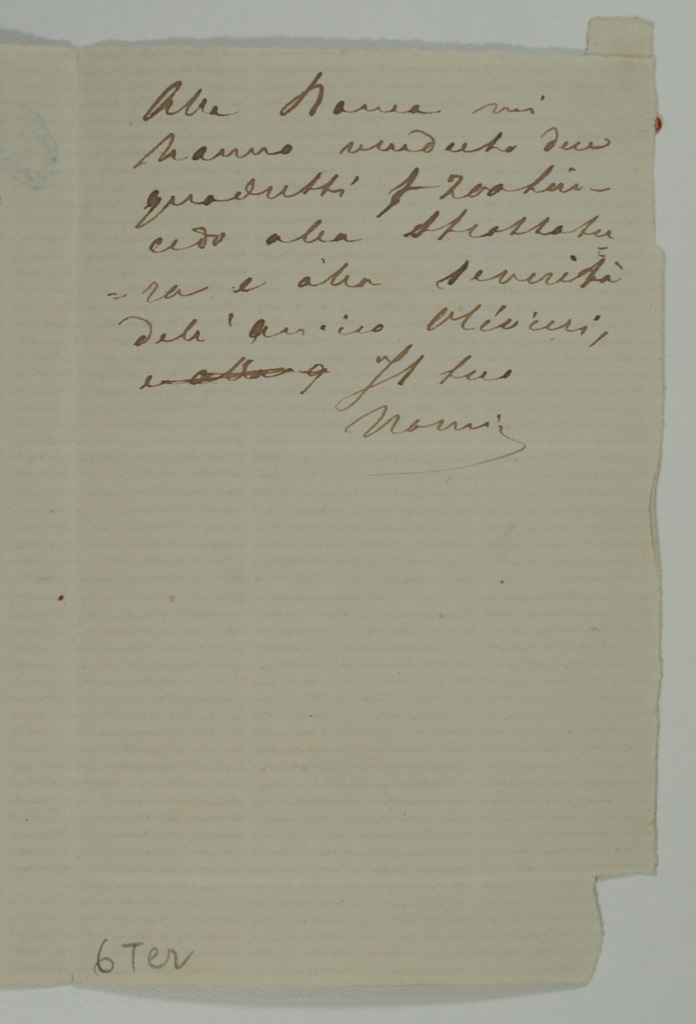 Alla Banca mi
hanno venduto due
quadretti £ 200
cedo alla strettatu
=ra e alla severità
dell' amico Olivieri,
e alla q Il tuo
6 Ter